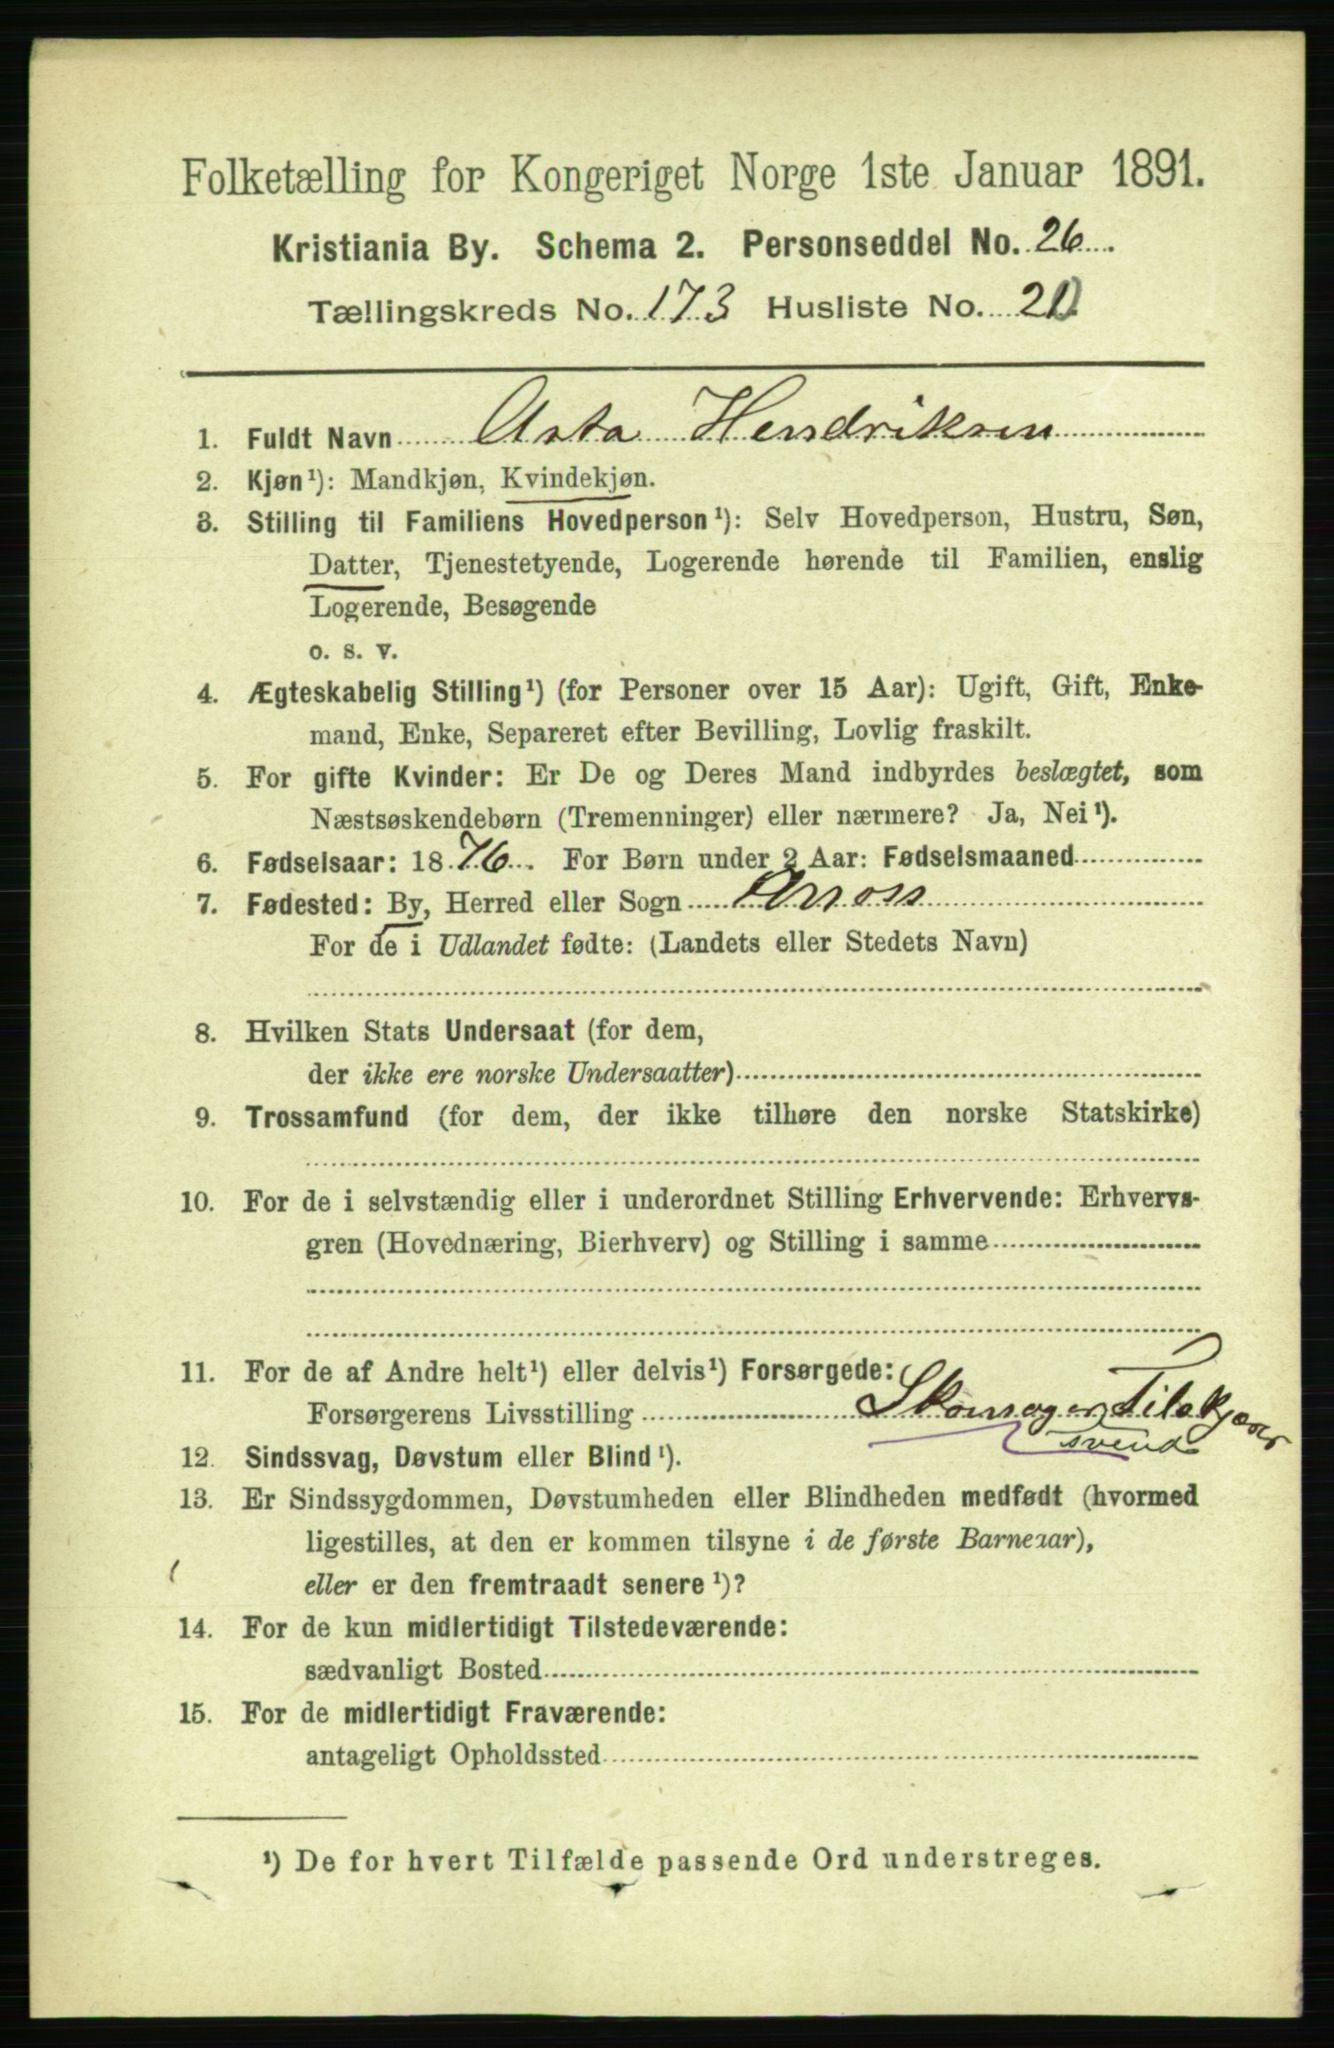 Folketælling for Kongeriget Norge 1ste Januar 1891.
Kristiania By. Schema 2. Personseddel No. 26
Tællingskreds No. 173 Husliste No.
1. Fuldt Navn Asta Hendriksen
2. Kjøn¹): Mandkjøn, Kvindekjøn.
3. Stilling til Familiens Hovedperson¹): Selv Hovedperson, Hustru, Søn,
Datter, Tjenestetyende, Logerende hørende til Familien, enslig
Logerende, Besøgende
o. s. v.
4. Ægteskabelig Stilling¹) (for Personer over 15 Aar): Ugift, Gift, Enke-
mand, Enke, Separeret efter Bevilling, Lovlig fraskilt.
5. For gifte Kvinder: Er De og Deres Mand indbyrdes beslægtet, som
Næstsøskendebørn (Tremenninger) eller nærmere? Ja, Nei¹).
6. Fødselsaar: 1876. For Børn under 2 Aar: Fødselsmaaned
7. Fødested: By, Herred eller Sogn
For de i Udlandet fødte: (Landets eller Stedets Navn)
8. Hvilken Stats Undersaat (for dem,
der ikke ere norske Undersaatter)
9. Trossamfund (for dem, der ikke tilhøre den norske Statskirke)
10. For de i selvstændig eller i underordnet Stilling Erhvervende: Erhvervs-
gren (Hovednæring, Bierhverv) og Stilling i samme
11. For de af Andre helt¹) eller delvis¹) Forsørgede:
Forsørgerens Livsstilling Skomager Tilskjærer
svend
12. Sindssvag, Døvstum eller Blind¹).
13. Er Sindssygdommen, Døvstumheden eller Blindheden medfødt (hvormed
ligestilles, at den er kommen tilsyne i de første Barneaar),
eller er den fremtraadt senere¹)?
14. For de kun midlertidigt Tilstedeværende:
sædvanligt Bosted
15. For de midlertidigt Fraværende:
antageligt Opholdssted
¹) De for hvert Tilfælde passende Ord understreges.